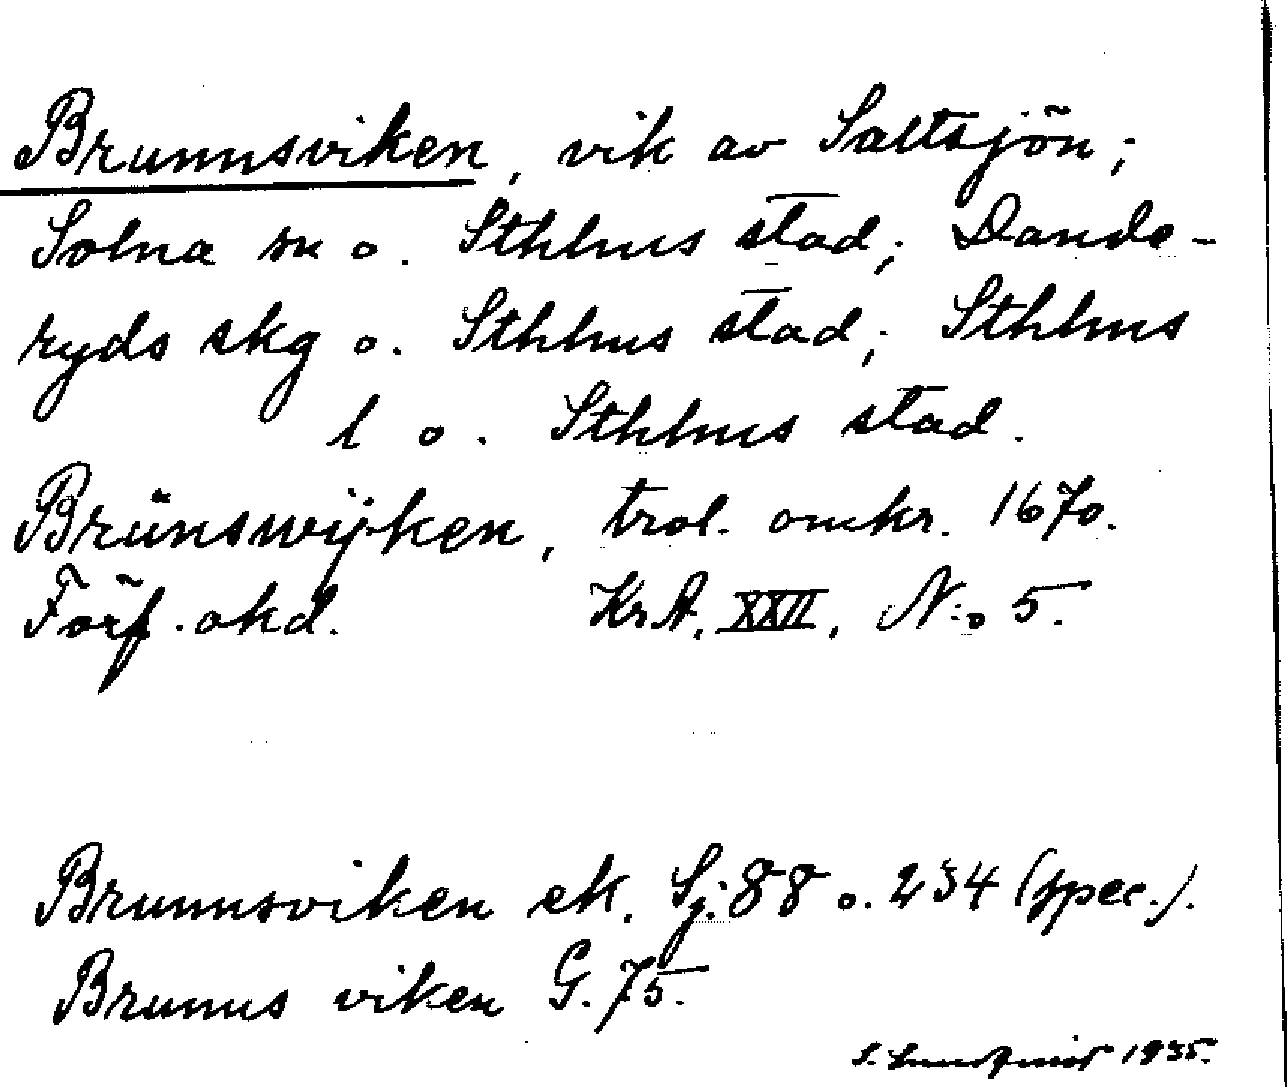 Brunnsviken, vik av Saltsjön;
Solna sn o. Sthlms stad; Dande-
ryds skg o. Sthlms stad; Sthlms
l o. Sthlms stad.
Brünswijken, trol. omkr. 1670.
Förf. okd. KrA. XXII, N:o 5.
Brunnsviken ek. Sj. 88 o. 234 (spec.).
Brunns viken G. 75.
S. Lundqvist 1935.